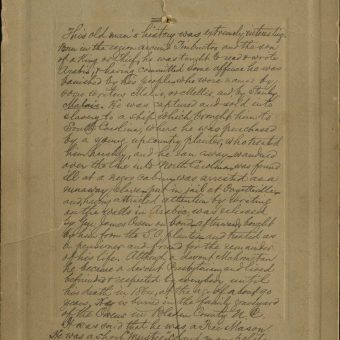 This old man's history was extremely interesting.
Born in the region around Timbuctoo and the son
of a King or Chief, he was taught to read & wrote
Arabic, & having committed some offence he was
banished by his people, who were named by
Malis, or Melles and by Stanley
Malais. He was captured and sold into
slavery to a ship which brought him to
South Carolina, where he was purchased
by a young upcountry planter, who treated
him harshly, and he ran away, wandered
over the line into North Carolina, was found
ill at a negro cabin, was arrested as a
runaway slave, put in jail at Fayetteville
and, having attracted attention by writing
on the walls in Arabic, was released
by Gen. James Owen on bond, afterwards bought
by him from the S.C. planter and treated as
a pensioner and friend for the remainder
of his life. Although a devout Mahometan
he became a devout Presbyterian and lived
befriended & respected by everybody until
his death in 1864, at the age of about 90
years. He is buried in the family graveyard
of the Owens in Bladen County N.C.
It was said that he was a Free Mason.
He was a school